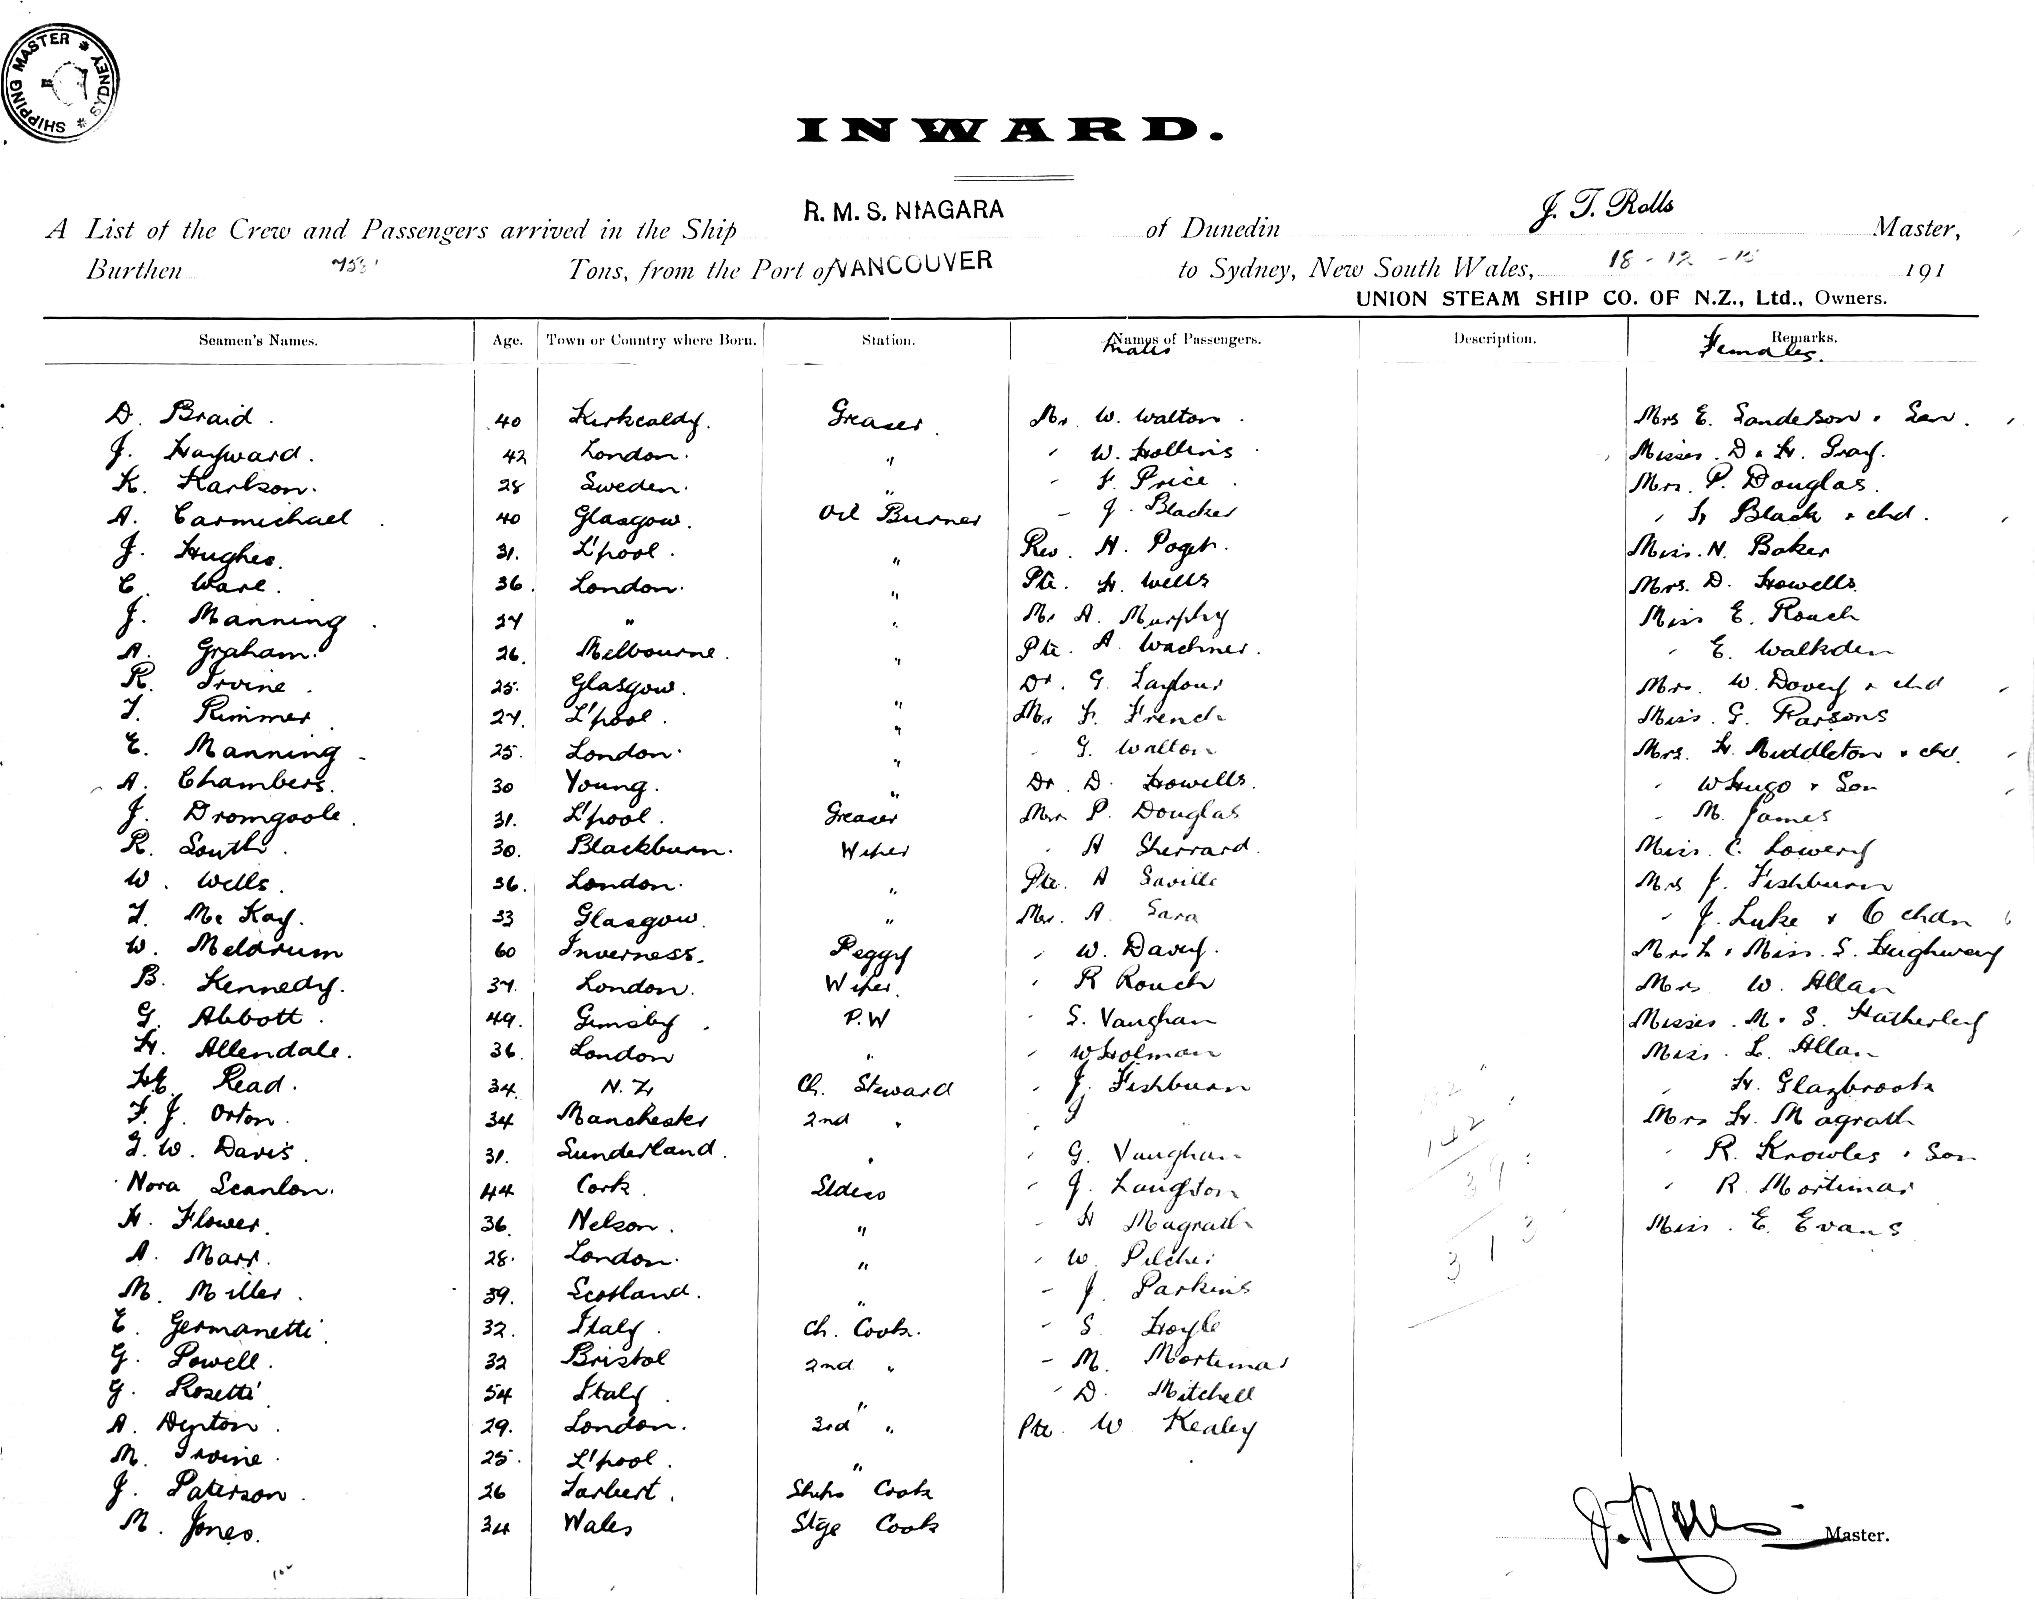 SHIPPING MASTER * SYDNEY *
INWARD.
A List of the Crew and Passengers arrived in the Ship R. M. S. NIAGARA of Dunedin J. T. Rolls Master,
Burthen Tons, from the Port of VANCOUVER to Sydney, New South Wales, 18 - 12 - 191
UNION STEAM SHIP CO. OF N.Z., Ltd., Owners.
Seamen's Names. Age. Town or Country where Born. Station. Names of Passengers. Description. Remarks.
Males Females.
D. Braid. 40 Kirkcaldy. Greaser. Mr W. Walton. Mrs E. Sanderson & Son.
J. Hayward. 42 London. " " W. Hollins Misses. D & H. Gray.
K. Karlson. 28 Sweden. " " F. Price. Mrs. P. Douglas.
A. Carmichael 40 Glasgow. Oil Burner " J. Blacker " H Black & chd.
J. Hughes. 31. L'pool. " Rev. H. Miss. N. Baker
C. Ware. 36. London. " Pte. H. Wells Mrs. D. Howells.
J. Manning. " " Mr A. Murphy Miss E. Rouch
A. Graham. 26. Melbourne. " Pte. A. Wachner. " E. Walkden
R. Irvine. 25. Glasgow. " Dr. G. Mrs. W. Davey & chd
T. Rimmer 27. L'pool. " Mr F. French Miss. G. Parsons
E. Manning 25. London. " " G. Walton Mrs. H. Middleton & chd.
A. Chambers. 30 Young. " Dr. D. Howells. " W Hugo & Son
J. Dromgoole. 31. L'pool. Greaser Mr P. Douglas " M. James
R. South. 30. Blackburn. Wiper " A Sherrard. Miss. C. Lowery
W. Wells. 36. London. " Pte. A Saville Mrs J. Fishburn
T. Mc Kay. 33 Glasgow. " Mr. A. Sara " J. Luke & 6 chdn
W. Meldrum 60 Inverness. Peggy " W. Davey. Mrs & Miss. S. Hughway
B. Kennedy. 37. London. Wiper. " R Rouch Mrs W. Allan
G. Abbott. 49. P.W " S. Vaughan Misses. M. & S. Hatherley
H. Allendale. 36. London " " W Holman Miss. L. Allan
Read. 34. N.Z. Ch. Steward " J. Fishburn " H. Glazbrook
F. J. Orton. 34 Manchester 2nd " " J Mrs H. Magrath
W. Davis. 31. Sunderland. " " G. Vaughan " R. Knowles & Son
Nora Scanlon. 44 Cork. " J. Langton " R. Mortimer
H. Flower. 36. Nelson. " " H Magrath Miss. E. Evans
A. Marr. 28. London. " " W. Pilcher
M. Miller. 39. Scotland. " " J. Parkins
E. Germanetti. 32. Italy. Ch. Cook. " S. Hoyle
G. Powell. 32 Bristol 2nd " " M. Mortimer
G. Rosetti 54 Italy " " D. Mitchell
A. Deyton 29. London. 3rd " Pte. W. Kealey
M. Irvine. 25. L'pool. "
J. Paterson. 26 Tarbert. Ships Cook
M. Jones. 34 Wales Stge Cook
142
39
313
J. Rolls Master.